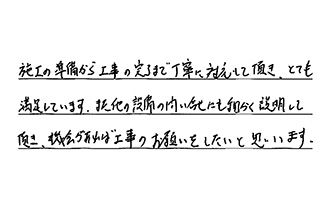 施工の準備から工事の完了まで丁寧に対応して頂き、とても
満足しています。又、他の設備の問い合せにも細かく説明して
頂き、機会があれば工事のお願いをしたいと思います。